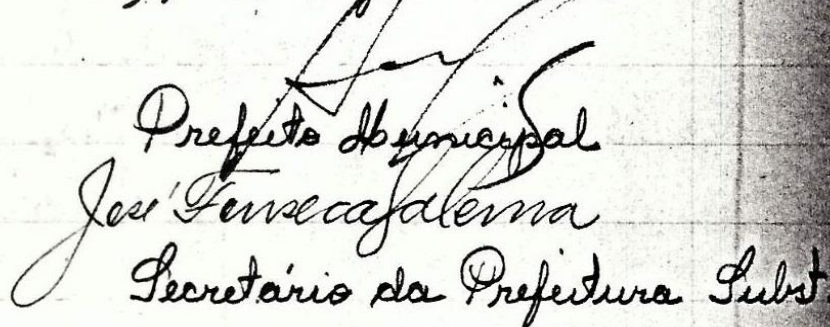 Prefeito Municipal
José Fonseca
Secretário da Prefeitura Subst